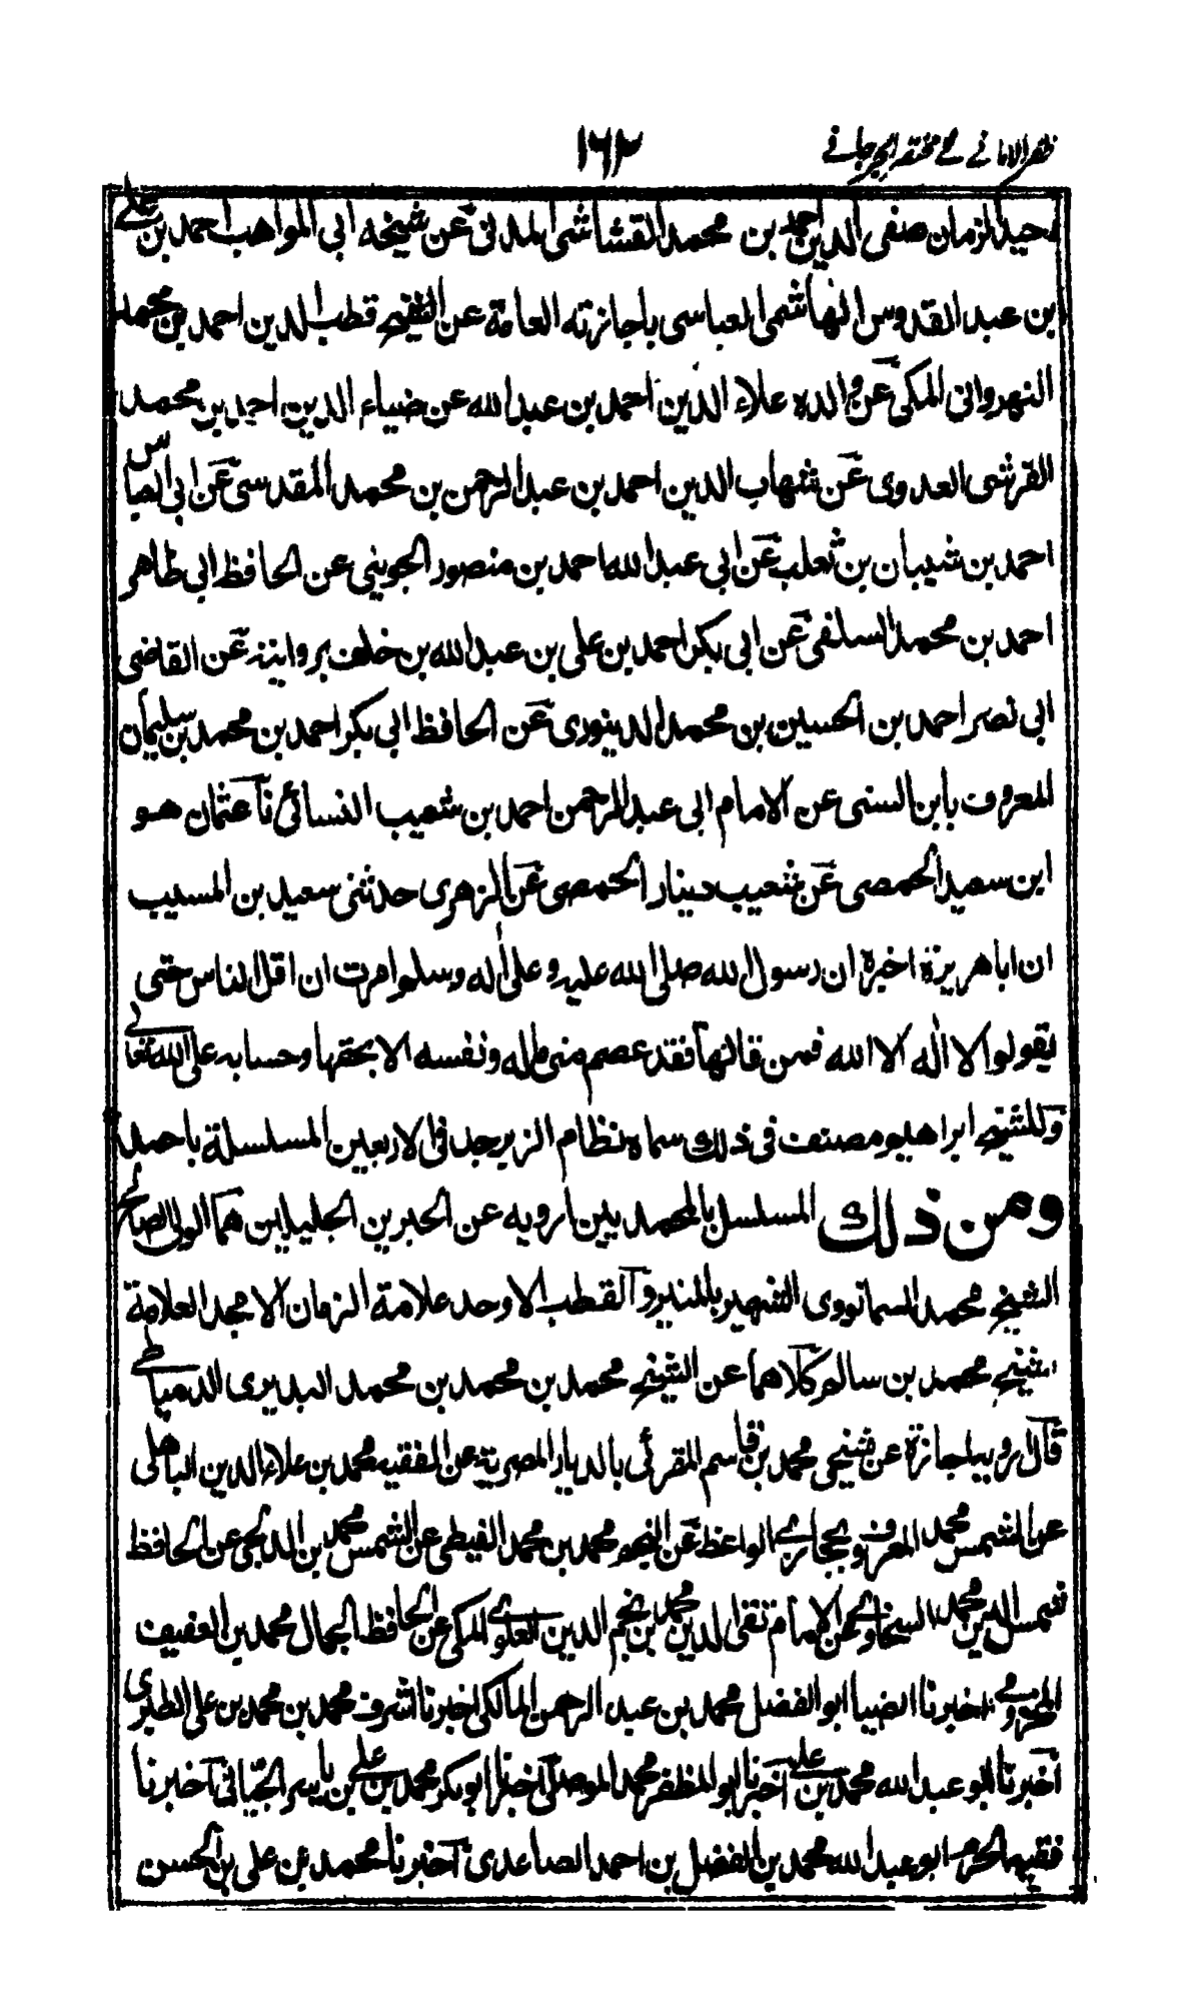 ظفر الامانی فی مختصر الجرجانی
١٦٢
وحيد الزمان صفى الدين احمد بن محمد القشاشى المدنى عن شيخه ابى المواهب احمد بن على
بن عبد القدوس الهاشمى العباسى باجازته العامة عن الشيخ قطب الدين احمد بن محمد
النهروانى المكى عن والده علاء الدين احمد بن عبد الله عن ضياء الدين احمد بن محمد
القرشى العدوى عن شهاب الدين احمد بن عبد الرحمن بن محمد المقدسى عن ابى العباس
احمد بن شيبان بن ثعلب عن ابى عبد الله احمد بن منصور الجوينى عن الحافظ ابى طاهر
احمد بن محمد السلفى عن ابى بكر احمد بن على بن عبد الله بن خلف بروايته عن القاضى
ابى نصر احمد بن الحسين بن محمد الدينورى عن الحافظ ابى بكر احمد بن محمد بن سليمان
المعروف بابن السنى عن الامام ابى عبد الرحمن احمد بن شعيب النسائى نا عثمان هو
ابن سعيد الحمصى عن شعيب دينار الحمصى عن الزهرى حدثنى سعيد بن المسيب
ان ابا هريرة اخبره ان رسول الله صلى الله عليه وعلى اله وسلم امرت ان اقاتل الناس حتى
يقولوا لا اله الا الله فمن قالها فقد عصم منى ماله ونفسه الا بحقها وحسابه على الله تعالى
وللشيخ ابراهيم مصنف فى ذلك سماه نظام الزبرجد فى الاربعين المسلسلة باحمد
ومن ذلك المسلسل بالمحمديين ارويه عن الحبرين الجليلين هما الولى الصالح
الشيخ محمد السمانووى الشهير بالمنير والقطب الاوحد علامة الزمان الامجد العلامة
شيخ محمد بن سالم كلاهما عن الشيخ محمد بن محمد بن محمد البديرى الدمياطى
قال ارويه اجازة عن شيخى محمد بن قاسم المقرئى بالديار المصرية عن الفقيه محمد بن علاء الدين البابلى
عن الشمس محمد المعروف بحجازى الواعظ عن النجم محمد بن محمد الغيطى عن الشمس محمد بن الدلجى عن الحافظ
شمس الدين محمد السخاوى عن الامام تقى الدين محمد بن نجم الدين العلوى المكى عن الحافظ الجمال محمد بن العفيف
المخزومى اخبرنا الضيا ابو الفضل محمد بن عبد الرحمن المالكى اخبرنا اشرف محمد بن محمد بن على الطبرى
اخبرنا ابو عبد الله محمد بن على اخبرنا ابو المظفر محمد الموصلى اخبرنا ابو بكر محمد بن على بن ياسر الجيانى اخبرنا
فقيه الحرم ابو عبد الله محمد بن الفضل بن احمد الصاعدى اخبرنا محمد بن على بن الحسن